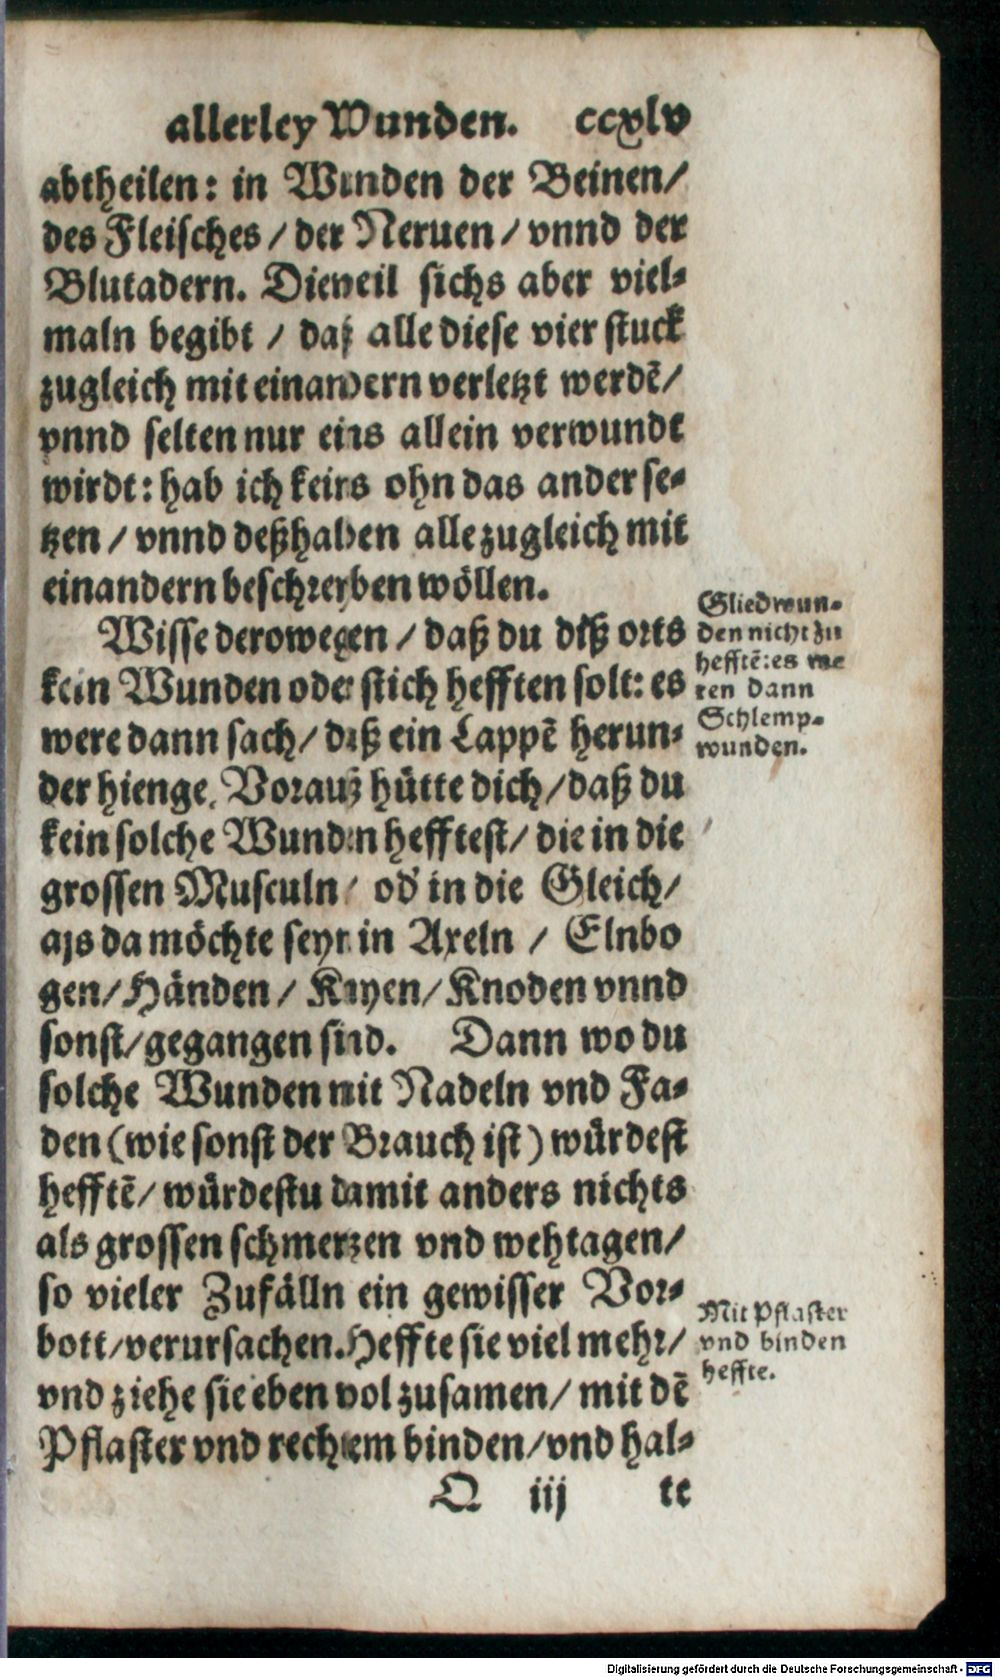 allerley Wunden. ccxlv
abtheilen: in Wunden der Beinen/
des Fleisches/ der Neruen/ vnnd der
Blutadern. Dieweil sichs aber viel-
maln begibt / daß alle diese vier stuck
zugleich mit einandern verletzt werdẽ/
vnnd selten nur eins allein verwundt
wirdt: hab ich keins ohn das ander se-
tzen / vnnd deßhalben alle zugleich mit
einandern beschreyben wöllen.
Wisse derowegen / daß du diß orts
kein Wunden oder stich hefften solt: es
were dann sach/ daß ein Lappẽ herun-
der hienge. Vorauß hütte dich/ daß du
kein solche Wunden hefftest/ die in die
grossen Musculn/ od' in die Gleich/
als da möchte seyn in Axeln / Elnbo
gen/ Händen/ Knyen/ Knoden vnnd
sonst/ gegangen sind. Dann wo du
solche Wunden mit Nadeln vnd Fa-
den (wie sonst der Brauch ist) würdest
hefftẽ/ würdestu damit anders nichts
als grossen schmertzen vnd wehtagen/
so vieler Zufälln ein gewisser Vor-
bott/ verursachen. Heffte sie viel mehr/
vnd ziehe sie eben wol zusamen/ mit dẽ
Pflaster vnd rechtem binden/ vnd hal-
Q iij te
Gliedwun-
den nicht zu
hefftẽ: es we
ren dann
Schlemp-
wunden.
Mit Pflaster
vnd binden
heffte.
Digitalisierung gefördert durch die Deutsche Forschungsgemeinschaft - DFG